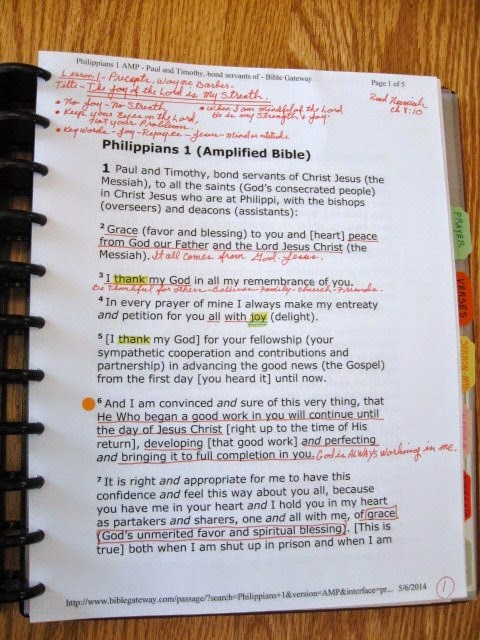 Philippians 1 AMP - Paul and Timothy, bond servants of - Bible Gateway
Page 1 of 5
Lesson 1 - Precepts, Wayne Barber -
Title - The Joy of the Lord is My Strenth.
Read Nehemiah
Ch 8:10
• No Joy - No Strenth
• Keep your Eyes on the Lord,
Not your Problems.
• When I am Mindful of the Lord
He is my Strength & joy.
• Key words - Joy - Rejoyce - Jesus - Mind or attitude
Philippians 1 (Amplified Bible)
1 Paul and Timothy, bond servants of Christ Jesus (the
Messiah), to all the saints (God's consecrated people)
in Christ Jesus who are at Philippi, with the bishops
(overseers) and deacons (assistants):
2 Grace (favor and blessing) to you and [heart] peace
from God our Father and the Lord Jesus Christ (the
Messiah). It all comes from God - Jesus.
3 I thank my God in all my remembrance of you.
Be Thankful for others - Believers - Family - church - Friends.
4 In every prayer of mine I always make my entreaty
and petition for you all with joy (delight).
5 [I thank my God] for your fellowship (your
sympathetic cooperation and contributions and
partnership) in advancing the good news (the Gospel)
from the first day [you heard it] until now.
6 And I am convinced and sure of this very thing, that
He Who began a good work in you will continue until
the day of Jesus Christ [right up to the time of His
return], developing [that good work] and perfecting
and bringing it to full completion in you. God is ALWAYS working in me.
7 It is right and appropriate for me to have this
confidence and feel this way about you all, because
you have me in your heart and I hold you in my heart
as partakers and sharers, one and all with me, of grace
(God's unmerited favor and spiritual blessing). [This is
true] both when I am shut up in prison and when I am
http://www.biblegateway.com/passage/?search=Philippians+1&version=AMP&interface=pr...
5/6/2014
1
PRAYER
VERSES